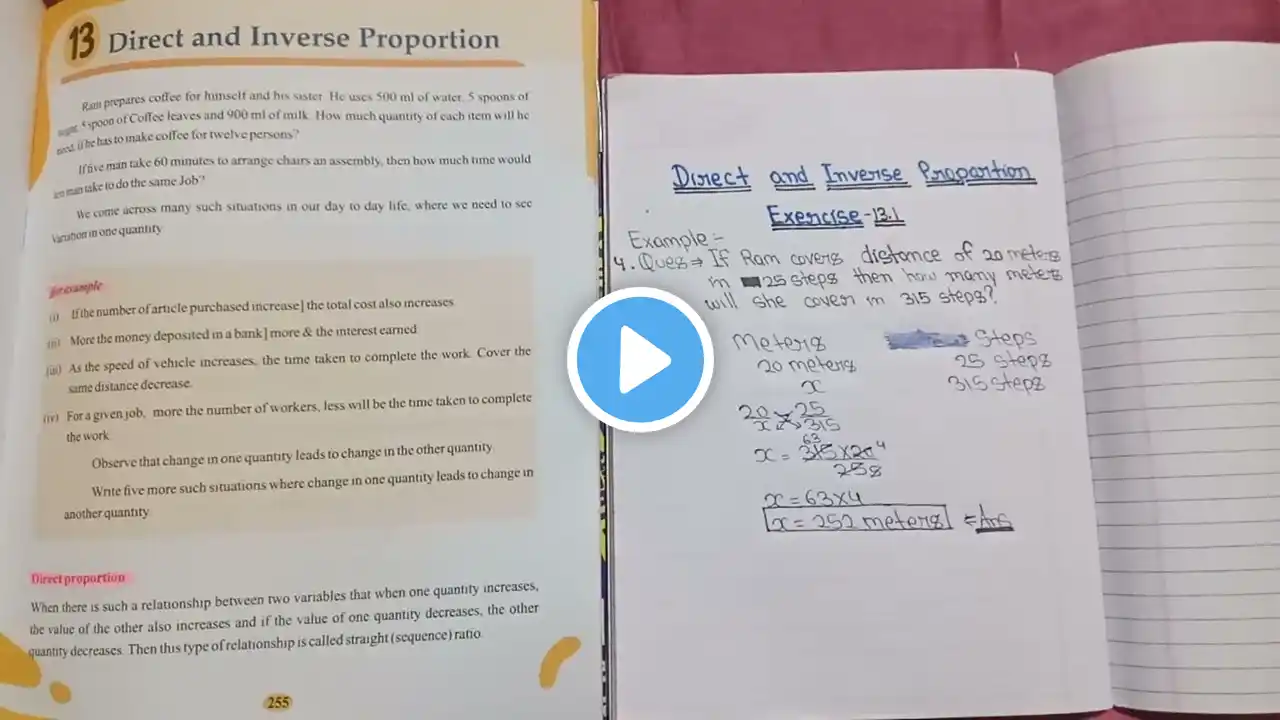 13 Direct and Inverse Proportion
Ram prepares coffee for himself and his sister. He uses 500 ml of water, 5 spoons of
sugar, spoon of Coffee leaves and 900 ml of milk. How much quantity of each item will he
need, if he has to make coffee for twelve persons?
If five man take 60 minutes to arrange chairs an assembly, then how much time would
ten man take to do the same Job?
We come across many such situations in our day to day life, where we need to see
Variation in one quantity.
For example
(i) If the number of article purchased increase| the total cost also increases.
(ii) More the money deposited in a bank| more & the interest earned
(iii) As the speed of vehicle increases, the time taken to complete the work. Cover the
same distance decrease.
(iv) For a given job, more the number of workers, less will be the time taken to complete
the work.
Observe that change in one quantity leads to change in the other quantity.
Write five more such situations where change in one quantity leads to change in
another quantity.
Direct proportion
When there is such a relationship between two variables that when one quantity increases,
the value of the other also increases and if the value of one quantity decreases, the other
quantity decreases. Then this type of relationship is called straight (sequence) ratio.
255
Direct and Inverse Propartion
Exercise-13.1
Example:-
4. Ques⇒ If Ram covers distance of 20 meters
in 25 steps then how many meters
will she cover in 315 steps?
Meters Steps
20 meters 25 steps
x 315 steps
20/x 25/315
x = 315×20/25
63 4
x = 63×4
x = 252 meters = Ans